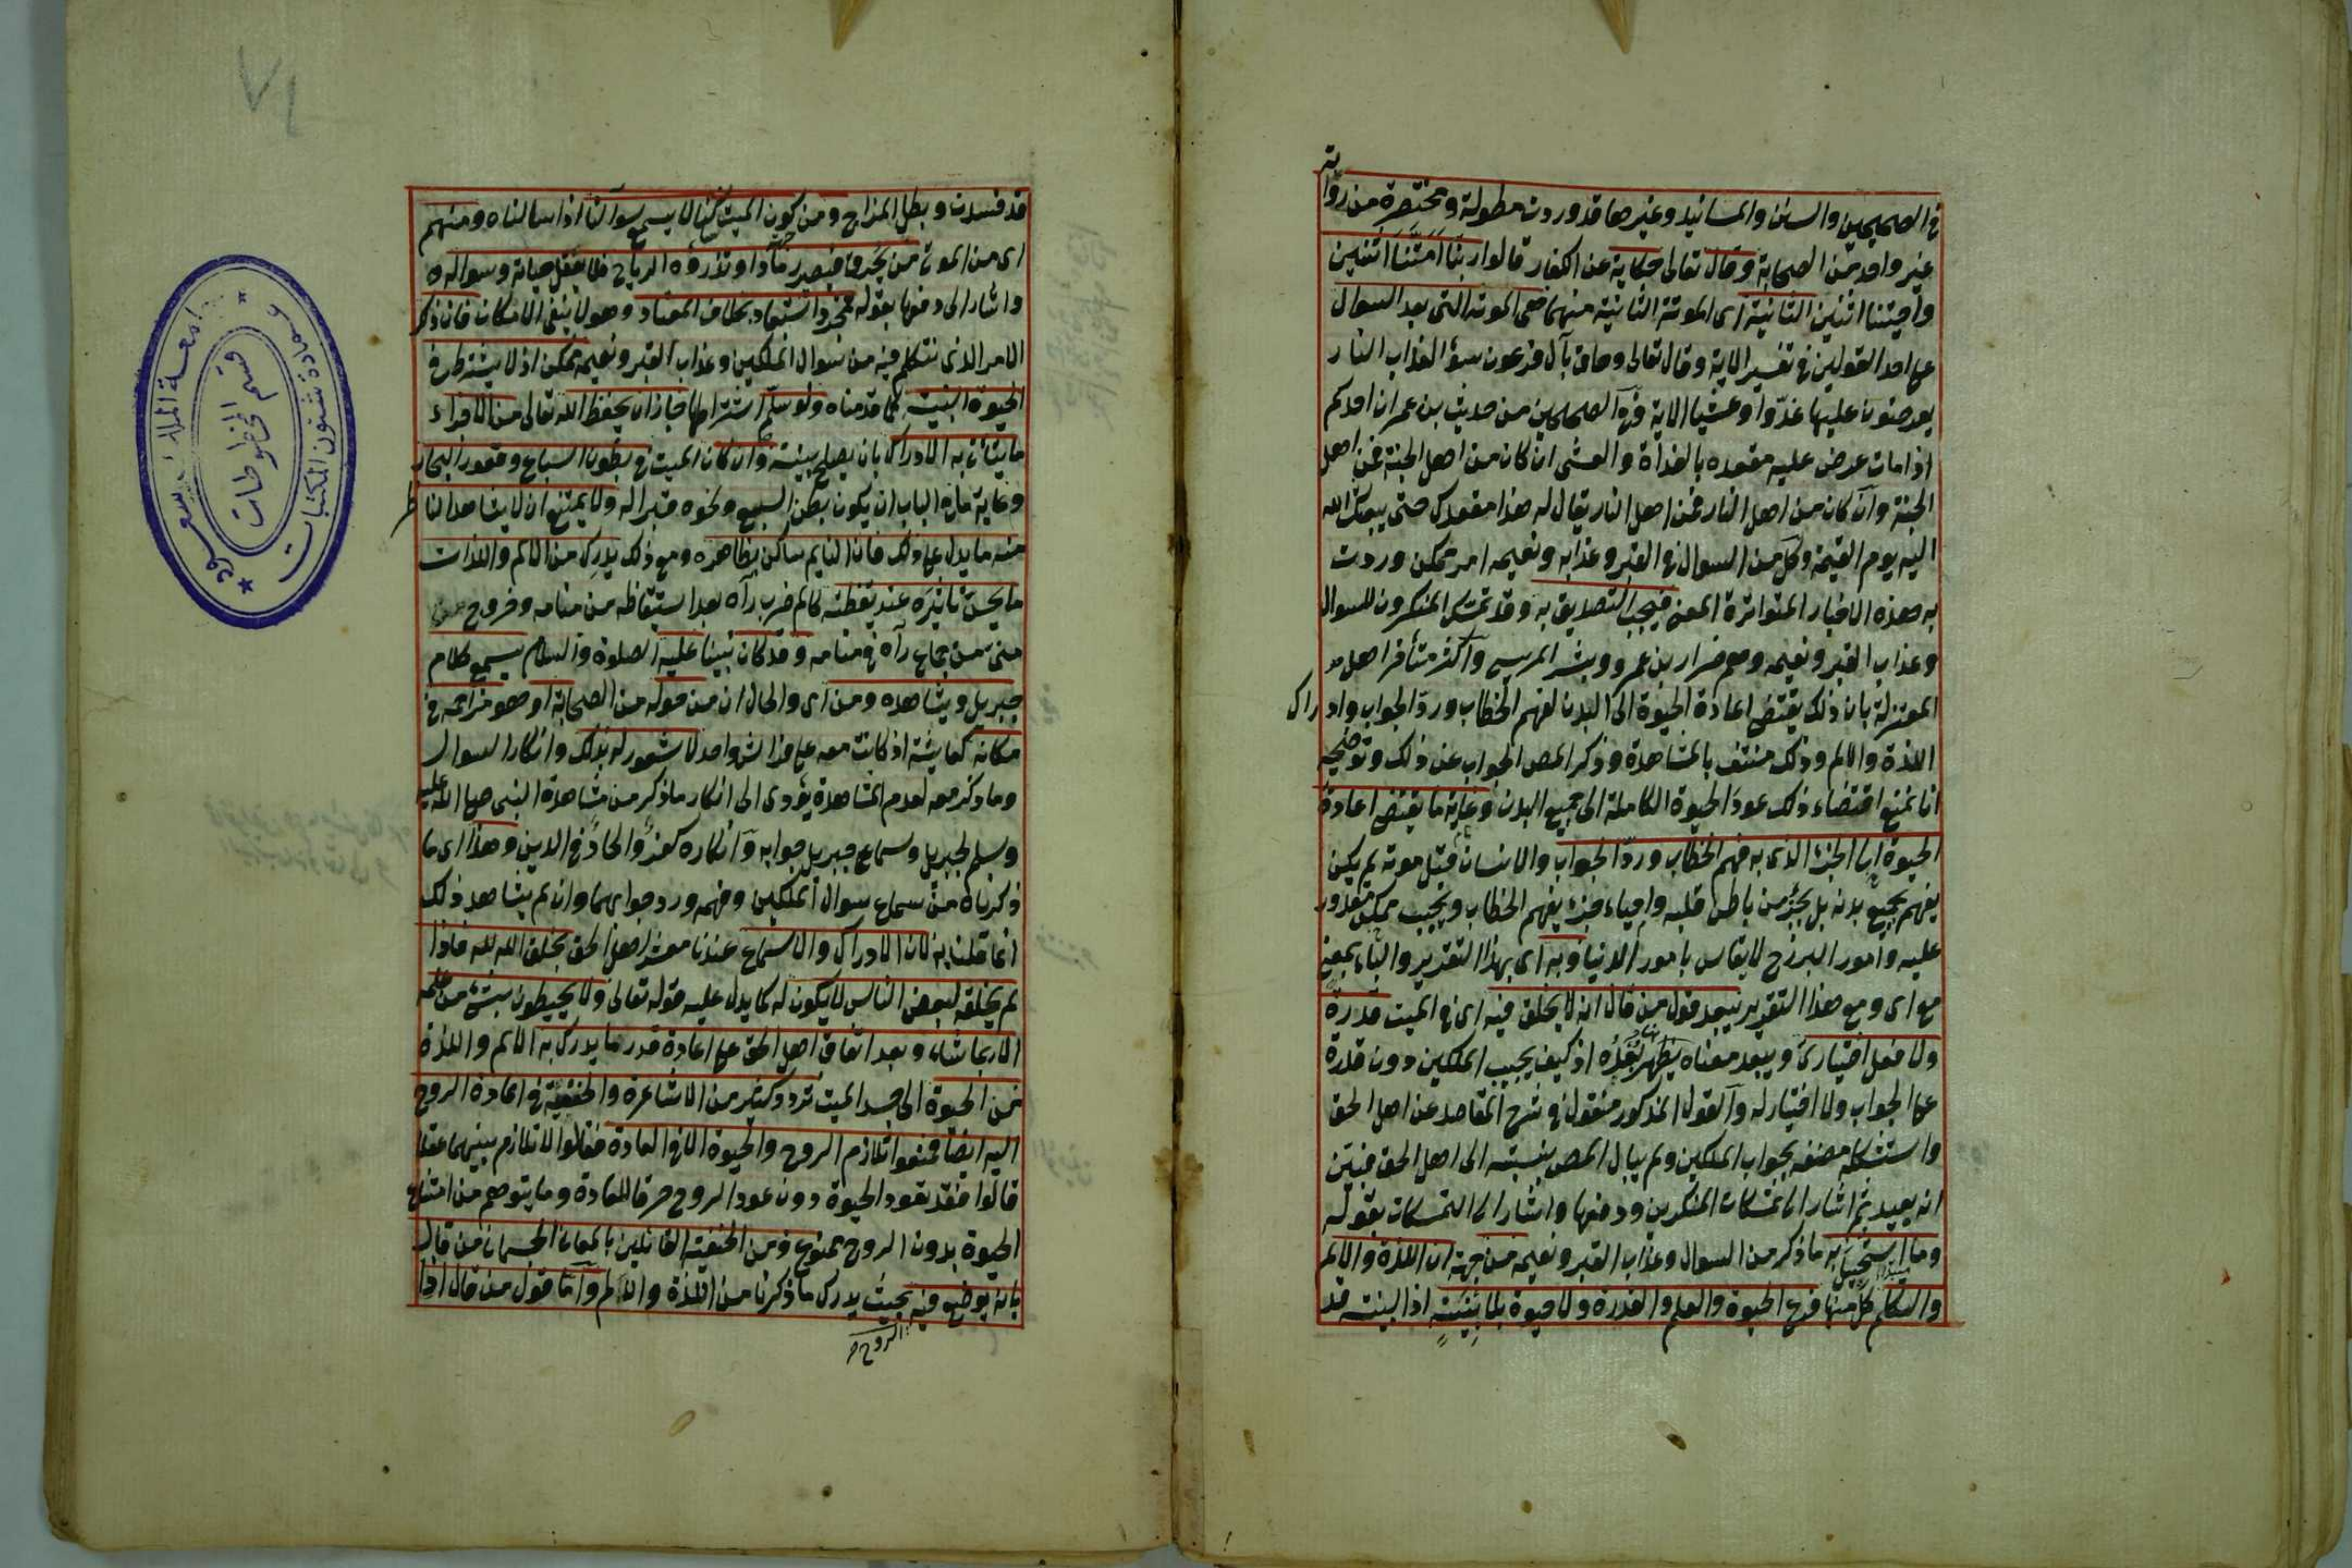 في الصحيحين والسنن والمسانيد وغيرها قد وردت مطولة ومختصرة من رواية
غير واحد من الصحابة وقال تعالى حكاية عن الكفار قالوا ربنا امتنا اثنتين
واحييتنا اثنتين الثانية اى الموتة الثانية منهما هى الموتة التى بعد السوال
على احد القولين في تفسير الاية وقال تعالى وحاق بآل فرعون سوء العذاب النار
يعرضون عليها غدوا وعشيا الاية وفي الصحيحين من حديث بن عمر ان احدكم
اذا مات عرض عليه مقعده بالغداة والعشى ان كان من اهل الجنة فمن اهل
الجنة وان كان من اهل النار فمن اهل النار يقال له هذا مقعدك حتى يبعثك الله
اليه يوم القيمة وكل من السوال في القبر وعذابه ونعيمه امر ممكن وردت
به هذه الاخبار المتواترة المعنى فيجب التصديق به وقد تمسك المنكرون للسوال
وعذاب القبر ونعيمه وهم ضرار بن عمرو وبشر المريسى واكثر متأخرا اهل
المعتزلة بان ذلك يقتضى اعادة الحيوة الى البدن لفهم الخطاب ورد الجواب وادراك
اللذة والالم وذلك منتف بالمشاهدة وذكر المص الجواب عن ذلك وتوضيحه
انا نمنع اقتضاء ذلك عود الحيوة الكاملة الى جميع البدن وغاية ما يقتضى اعادة
الحيوة الى الجزء الذى به فهم الخطاب ورد الجواب والانسان قبل موته لم يكن
يفهم بجميع بدنه بل بجزء من باطن قلبه واحياء جزء يفهم الخطاب ويجيب ممكن مقدور
عليه وامور البرزخ لا يقاس بامور الدنيا وبه اى بهذا التقدير والباء بمعنى
مع اى ومع هذا التقدير يبعد قول من قال انه لا يخلق فيه اى في الميت قدرة
ولا فعل اختيارى ويبعد معناه يظهر بعده اذ كيف يجيب الملكين دون قدرة
على الجواب ولا اختيار له والقول المذكور منقول في شرح المقاصد عن اهل الحق
واستشكله مصنفه بجواب الملكين ولم يبال المص بنسبته الى اهل الحق فبين
انه بعيد ثم اشار الى تمسكات المنكرين ودفعها واشار الى التمسكات بقوله
وما استحيل به ما ذكر من السوال وعذاب القبر ونعيمه من جهة ان اللذة والالم
والتكلم كل منها فرع الحيوة والعلم والقدرة ولا حيوة بلا بنية اذ البنية قد
قد فسدت وبطل المزاج ومن كون الميت ساكنا لا يسمع سوالنا اذا سالناه ومنهم
اى من الموتى من يحرق فيصير رمادا وتذروه الرياح فلا يعقل حياته وسواله
واشار الى دفعها بقوله مجرد استبعاد بخلاف المعتاد وهو لا ينفى الامكان فان ذلك
الامر الذى نتكلم فيه من سوال الملكين وعذاب القبر ونعيمه ممكن اذ لا يشترط في
الحيوة البنية كما قدمناه ولو سلم اشتراطها جاز ان يحفظ الله تعالى من الاجزاء
ما يتاتى به الادراك بان يصلح بنيته وان كان الميت في بطون السباع وقعور البحار
وغاية ما في الباب ان يكون بطن السبع ونحوه قبرا له ولا يمتنع ان لا يشاهد الناظر
منه ما يدل على ذلك فان النايم ساكن بظاهره ومع ذلك يدرك من الالم واللذات
ما يحس تاثيره عند يقظته كالم ضرب رآه بعد استيقاظه من منامه وخروج
منى من جماع رآه في منامه وقد كان نبينا عليه الصلوة والسلام يسمع كلام
جبريل ويشاهده ومن اى والحال ان من حوله من الصحابة او هو مزاحمه في
مكانه كعايشة اذ كانت معه على فراش واحد لا شعور له بذلك وانكار السوال
وما ذكر معه لعدم المشاهدة يؤدى الى انكار ما ذكر من مشاهدة النبى صلى الله عليه
وسلم لجبريل وسماع جبريل جوابه وانكاره كفر والحاد في الدين وهذا اى ما
ذكرناه من سماع سوال الملكين وفهمه ورد جوابهما وان لم يشاهد ذلك
انما قلنا به لان الادراك والاسماع عندنا معشر اهل الحق بخلق الله لله فاذا
لم يخلقه لبعض الناس لا يكون له كما يدل عليه قوله تعالى ولا يحيطون بشئ من علمه
الا بما شاء وبعد اتفاق اهل الحق على اعادة قدر ما يدرك به الالم واللذة
من الحيوة الى جسد الميت تردد كثير من الاشاعرة والحنفية في اعادة الروح
اليه ايضا فمنعوا تلازم الروح والحيوة الا في العادة فقالوا لا تلازم بينهما عقلا
قالوا فقد تعود الحيوة دون عود الروح خرقا للعادة وما يتوهم من امتناع
الحيوة بدون الروح ممنوع ومن الحنفية القائلين بالمعاد الجسمانى من قال
بانه يوضع فيه بحيث يدرك ما ذكرنا من اللذة والالم واما قول من قال اذا
الروح
٧٤
جامعة الملك سعود
عمادة شئون المكتبات
قسم المخطوطات